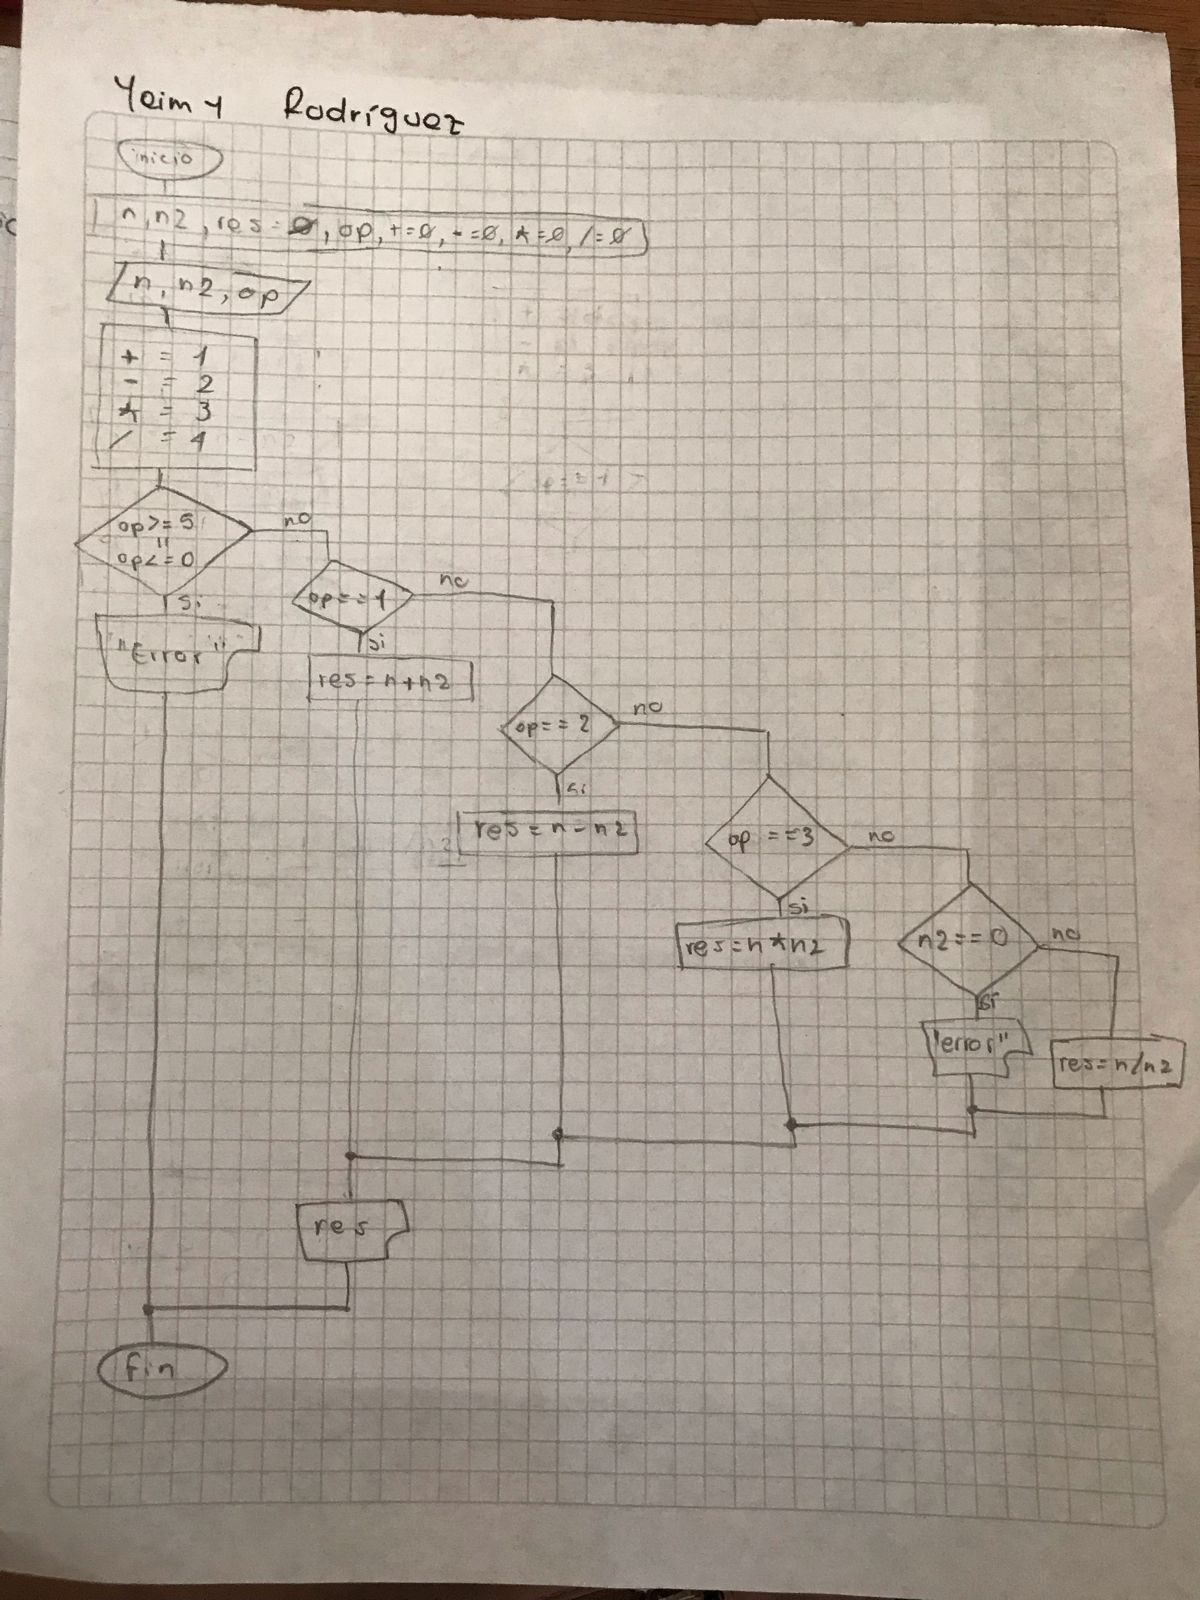 Yeimy Rodríguez
inicio
n, n2, res = 0, op, + = 0, - = 0, * = 0, / = 0
n, n2, op
+ = 1
- = 2
* = 3
/ = 4
op >= 5
||
op <= 0
no
si
"Error"
op == 1
no
si
res = n + n2
op == 2
no
si
res = n - n2
op == 3
no
si
res = n * n2
n2 == 0
no
si
"error"
res = n / n2
res
fin